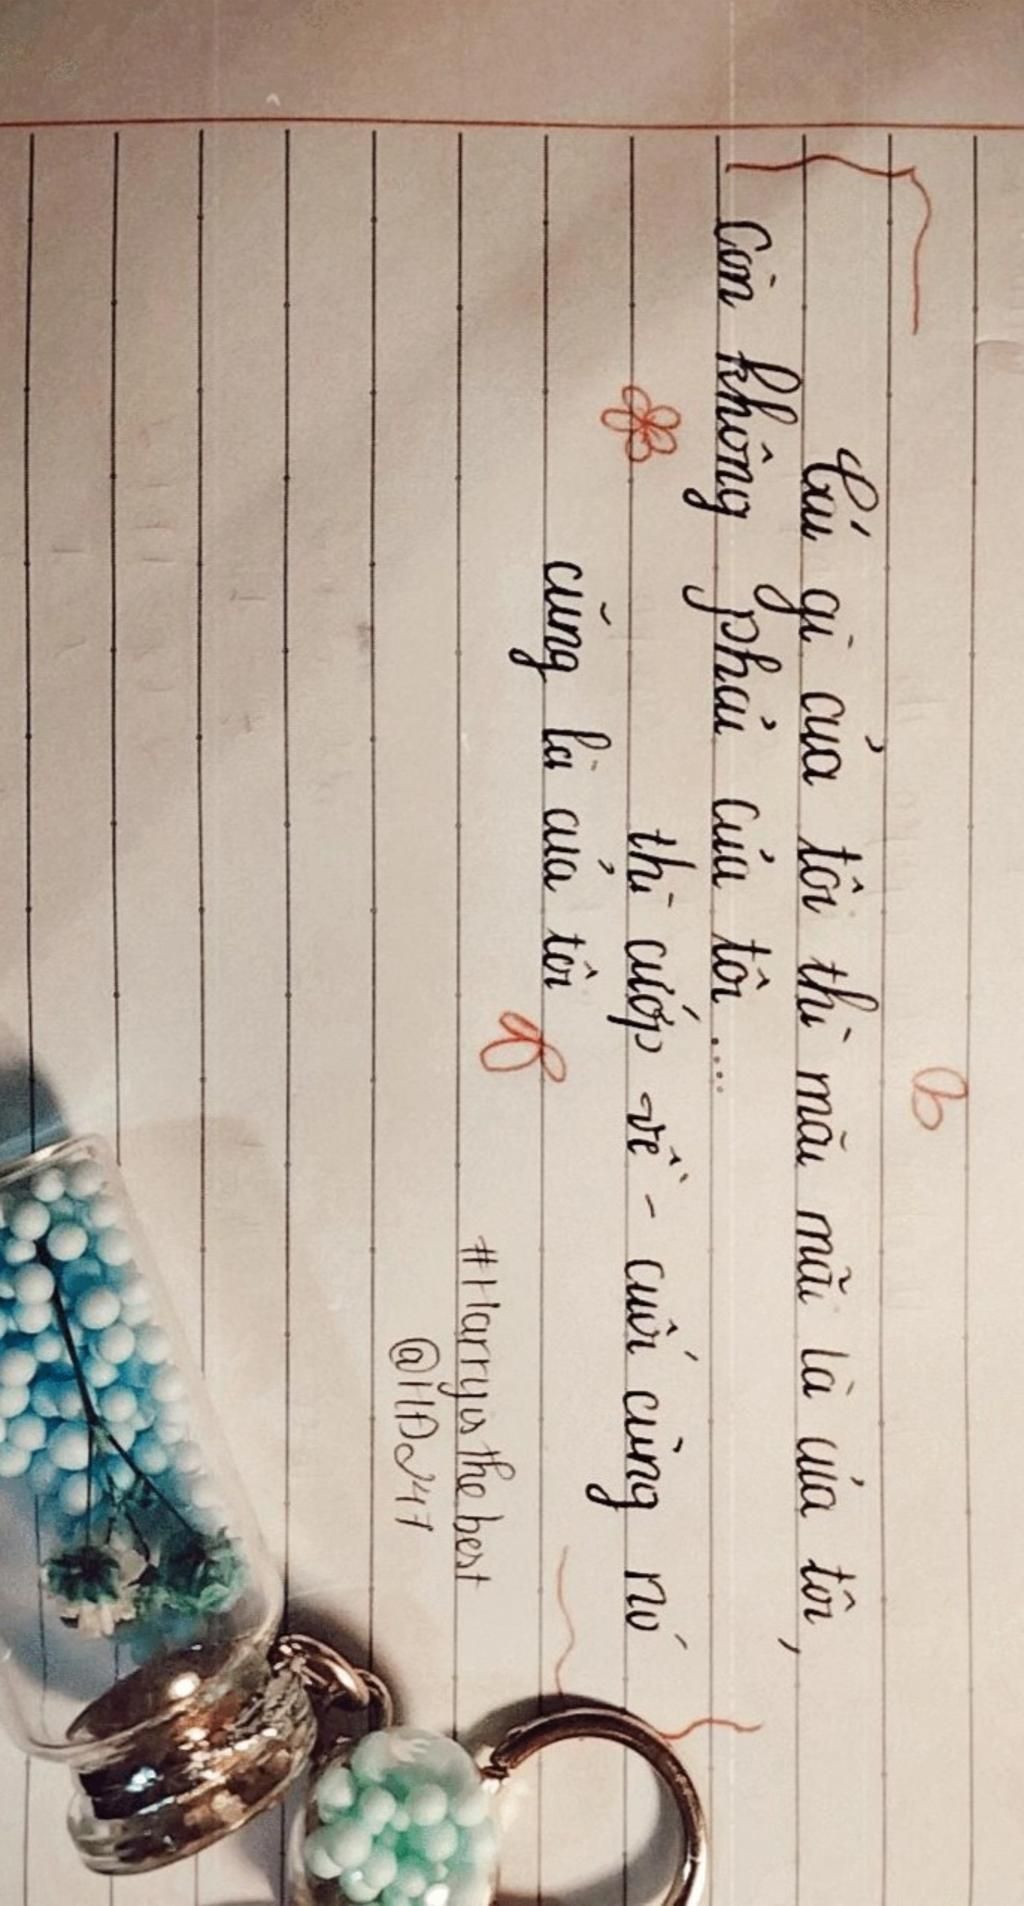 Cái gì của tôi thì mãi mãi là của tôi,
Còn không phải của tôi.....
thì cướp về - cuối cùng nó
cũng là của tôi
#Harry is the best
@HĐ247